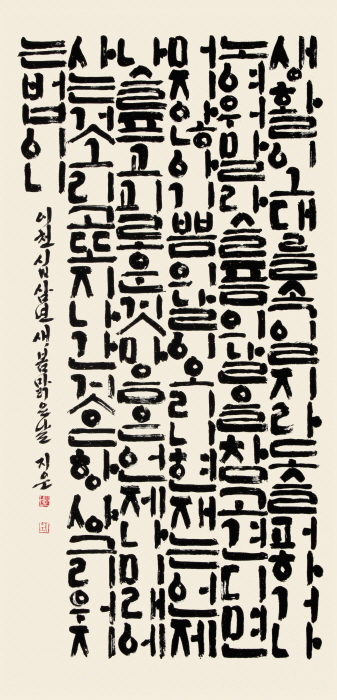 생활이그대를속일지라도슬퍼하거나
노여워말라슬픔의날을참고견디면
머지않아기쁨의날이오리니현재는언제
나슬프고괴로운것마음은언제나미래에
사는것그리고또지나간것은항상그리워지
는법이니
이천십삼년새봄맑은날 지운